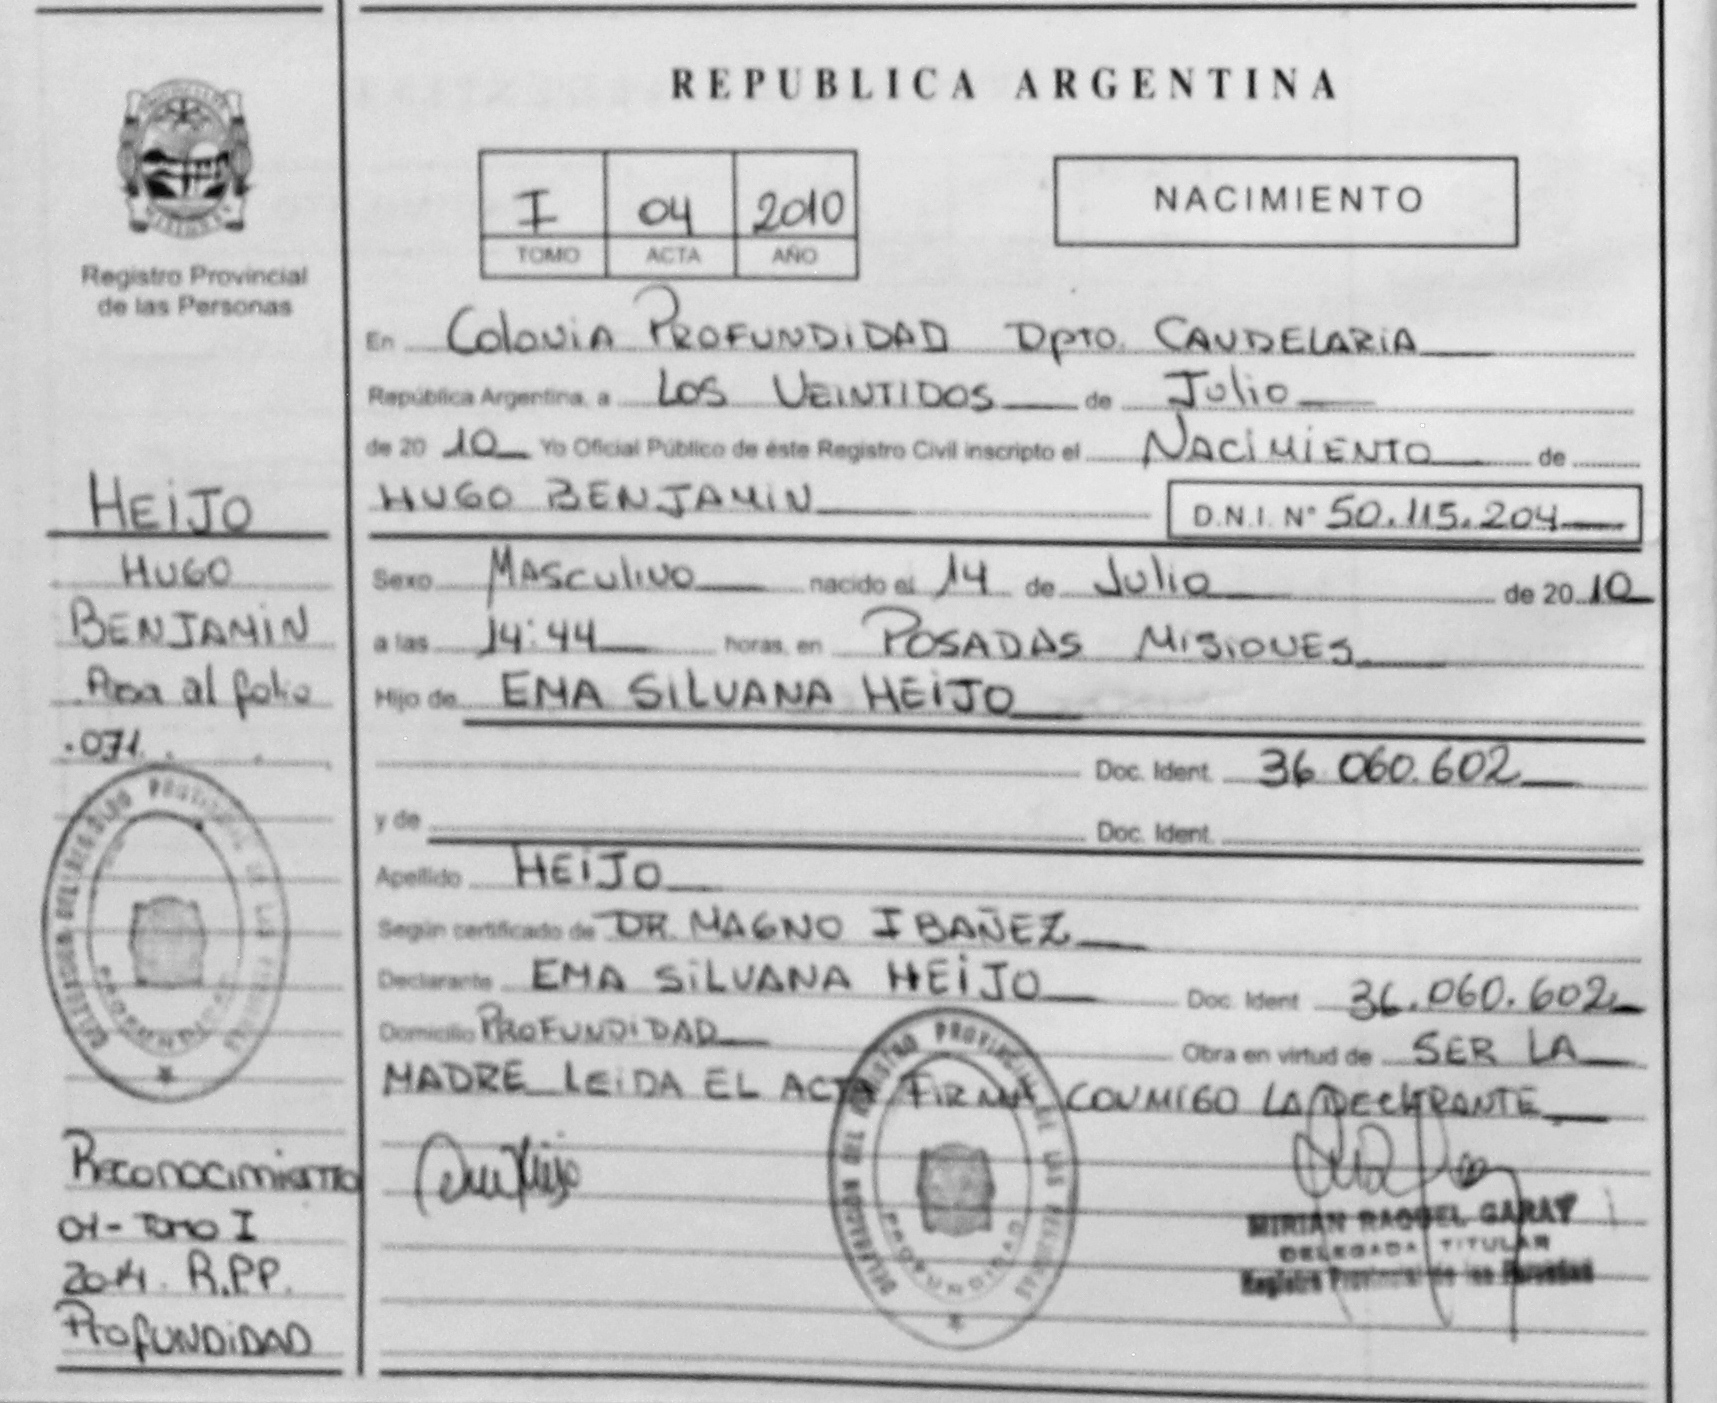 REPUBLICA ARGENTINA
I 04 2010
TOMO ACTA AÑO
NACIMIENTO
Registro Provincial
de las Personas
En Colonia PROFUNDIDAD Dpto. CANDELARIA
República Argentina, a LOS VEINTIDOS de Julio
de 20 10 Yo Oficial Público de éste Registro Civil inscripto el NACIMIENTO de
HUGO BENJAMIN D.N.I. N° 50.115.204
Sexo MASCULINO nacido el 14 de Julio de 20 10
a las 14:44 horas, en POSADAS MISIONES
Hijo de EMA SILVANA HEIJO
Doc. Ident. 36.060.602
y de Doc. Ident.
Apellido HEIJO
Según certificado de DR. MAGNO IBAÑEZ
Declarante EMA SILVANA HEIJO Doc. Ident 36.060.602
Domicilio PROFUNDIDAD Obra en virtud de SER LA
MADRE LEIDA EL ACTA FIRMA CONMIGO LA DECLARANTE
MIRIAN RAQUEL GARAY
DELEGADA TITULAR
Registro Provincial de las Personas
HEIJO
HUGO
BENJAMIN
Pasa al folio
071
Reconocimiento
01 - Tomo I
2014. R.P.P.
PROFUNDIDAD
DELEGACION DEL REGISTRO PROVINCIAL DE LAS PERSONAS
PROFUNDIDAD
DELEGACION DEL REGISTRO PROVINCIAL DE LAS PERSONAS
PROFUNDIDAD